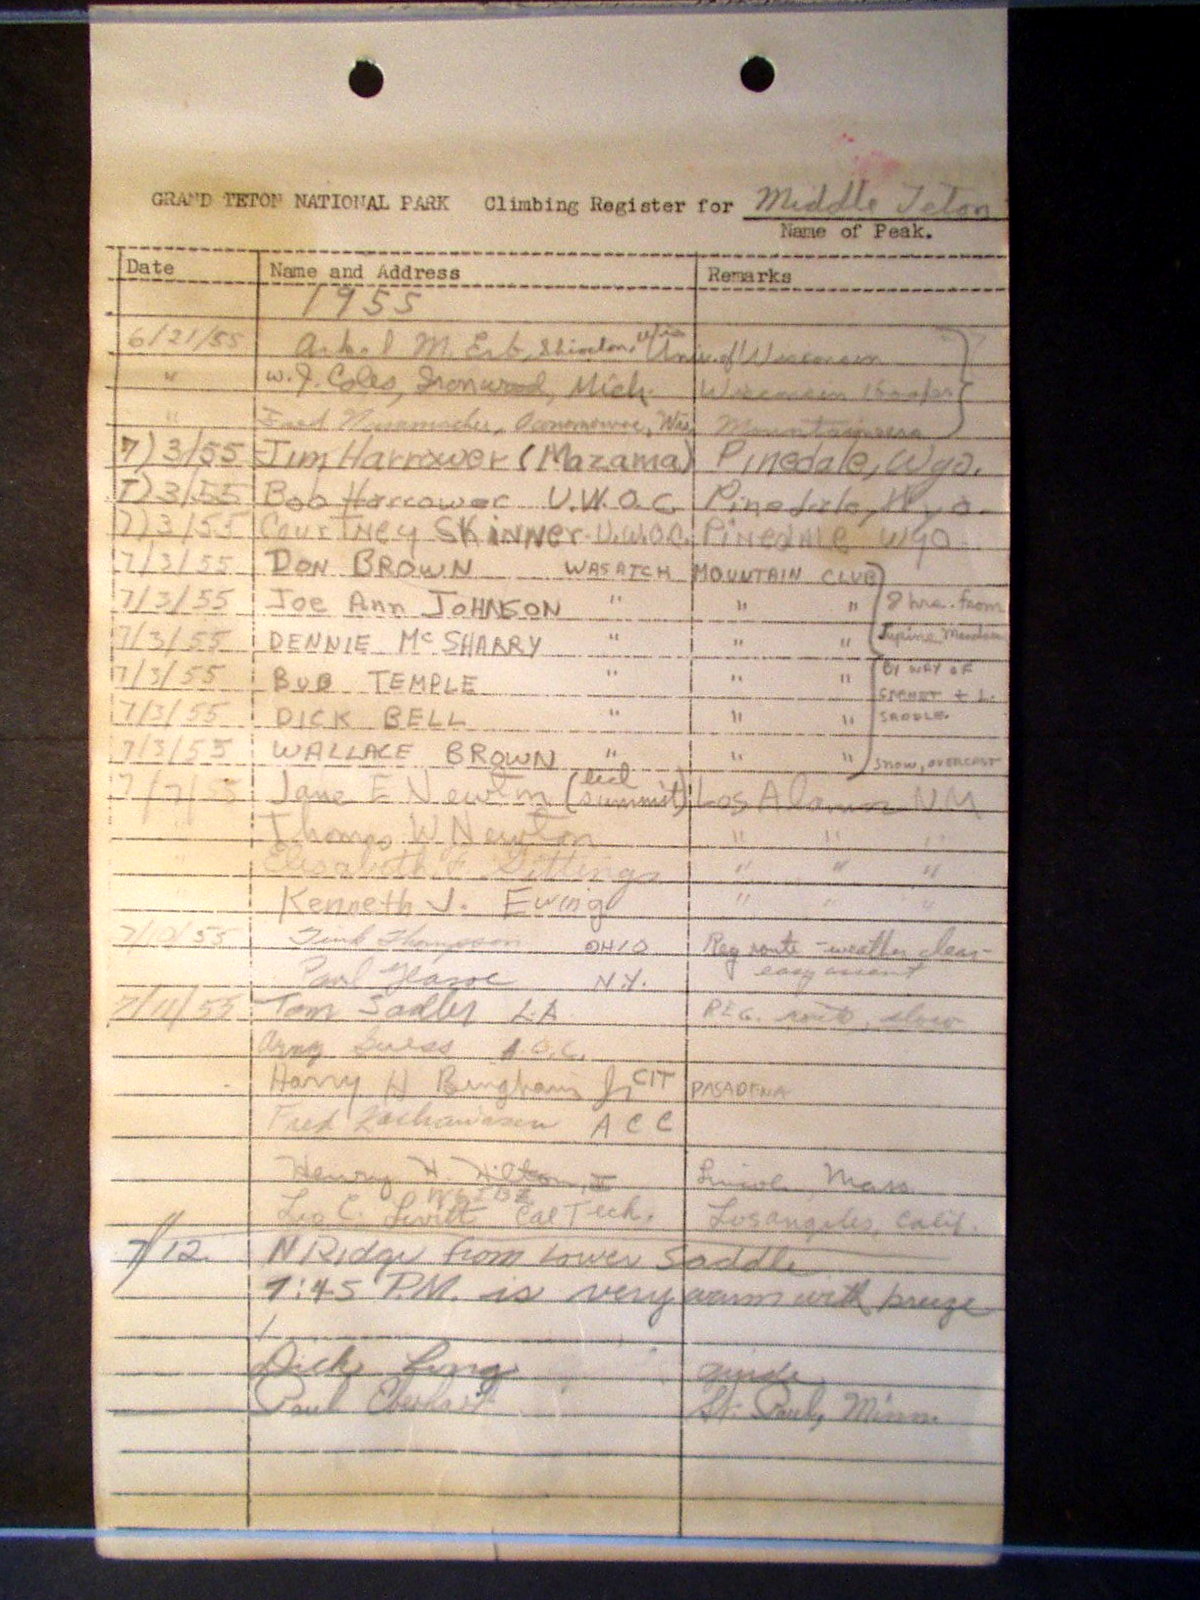 GRAND TETON NATIONAL PARK Climbing Register for Middle Teton
Name of Peak.
Date Name and Address Remarks
1955
6/21/55 M. Erb, Wis Univ. of Wisconsin
" W. J. Coles, Ironwood, Mich. Wisconsin Hoofers
" Fred Oconomowoc, Wis. Mountaineers
7/3/55 Jim Harrower (Mazama) Pinedale, Wyo.
7/3/55 Bob Harrower U.W.O.C. Pinedale, Wyo.
7/3/55 Courtney Skinner U.W.O.C. Pinedale Wyo.
7/3/55 DON BROWN WASATCH MOUNTAIN CLUB
7/3/55 Joe Ann JOHNSON " " " 8 hrs. from
7/3/55 DENNIE McSHARRY " " " Lupine Meadows
7/3/55 BUB TEMPLE " " " BY WAY OF
7/3/55 DICK BELL " " " + L. SADDLE.
7/3/55 WALLACE BROWN " " " SNOW, OVERCAST
7/7/55 Jane E Newton (led summit) Los Alamos NM
Thomas W Newton " " "
" Elizabeth Gittings " " "
" Kenneth J. Ewing " " "
7/10/55 Thompson OHIO Reg route - weather clear -
Paul N.Y. easy ascent
7/11/55 Tom Sadler L.A. REG. route,
A.O.C.
Harry H Bingham Jr CIT PASADENA
Fred Zachariasen A C C
Henry H. II Lincoln, Mass
Leo C. Levitt Cal Tech. Los Angeles, Calif.
7/12 N Ridge from Lower Saddle
7:45 P.M. is very warm with breeze
Dick Long guide
Paul Eberhart St. Paul, Minn.